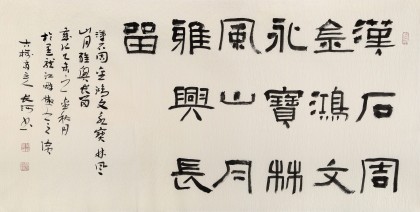 漢石周
金鴻文
永寶林
風山月
雅興長
留
漢石周金鴻文永寶林風
山月雅興長留
秋月
於黑龍江